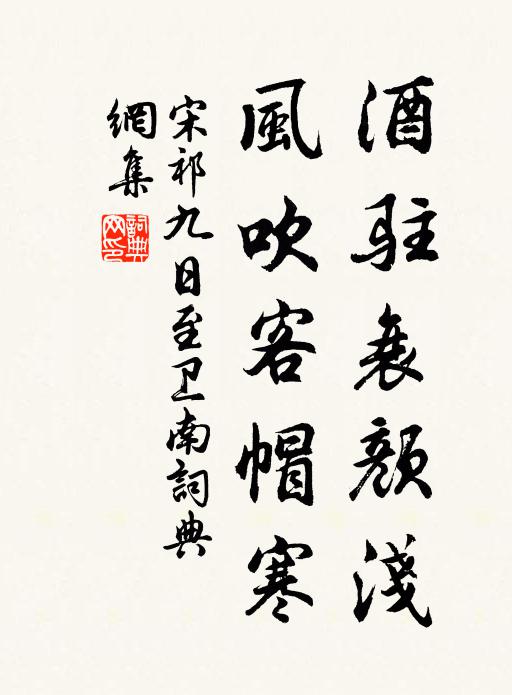 酒駐衰顔淺
風吹客帽寒
宋祁九日至卫南詞典
網集
詞典网印